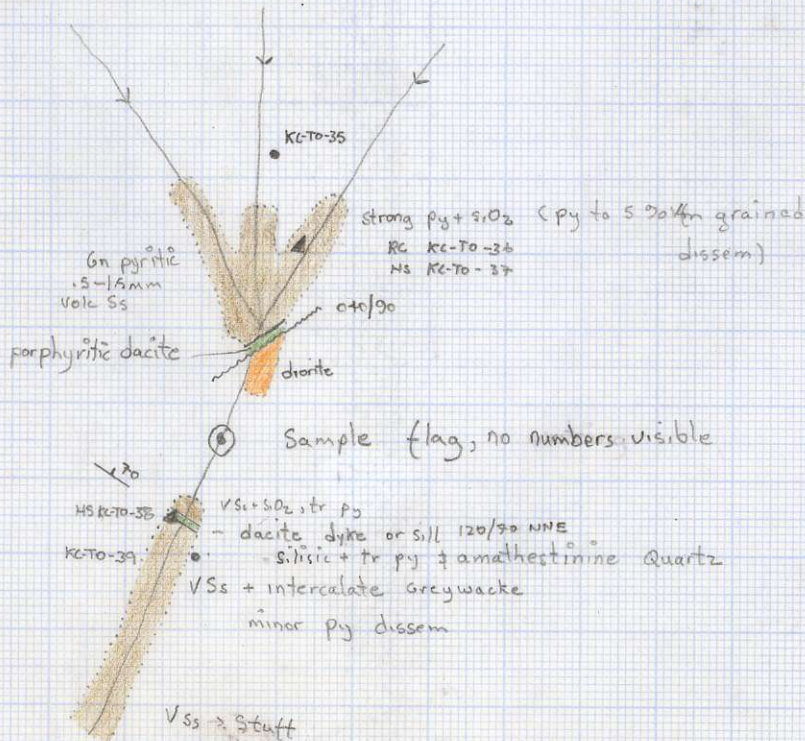 KC-TO-35
strong py + SiO2 (py to 5 % fn grained
dissem)
RC KC-TO-36
HS KC-TO-37
Gn pyritic
.5-1.5mm
Volc Ss
040/90
porphyritic dacite
diorite
Sample flag, no numbers visible
70
HS KC-TO-38
VSs + SiO2, tr py
- dacite dyke or sill 120/90 NNE
KC-TO-39
silisic + tr py & amathestinine Quartz
VSs + intercalate Greywacke
minor py dissem
VSs > Stuff